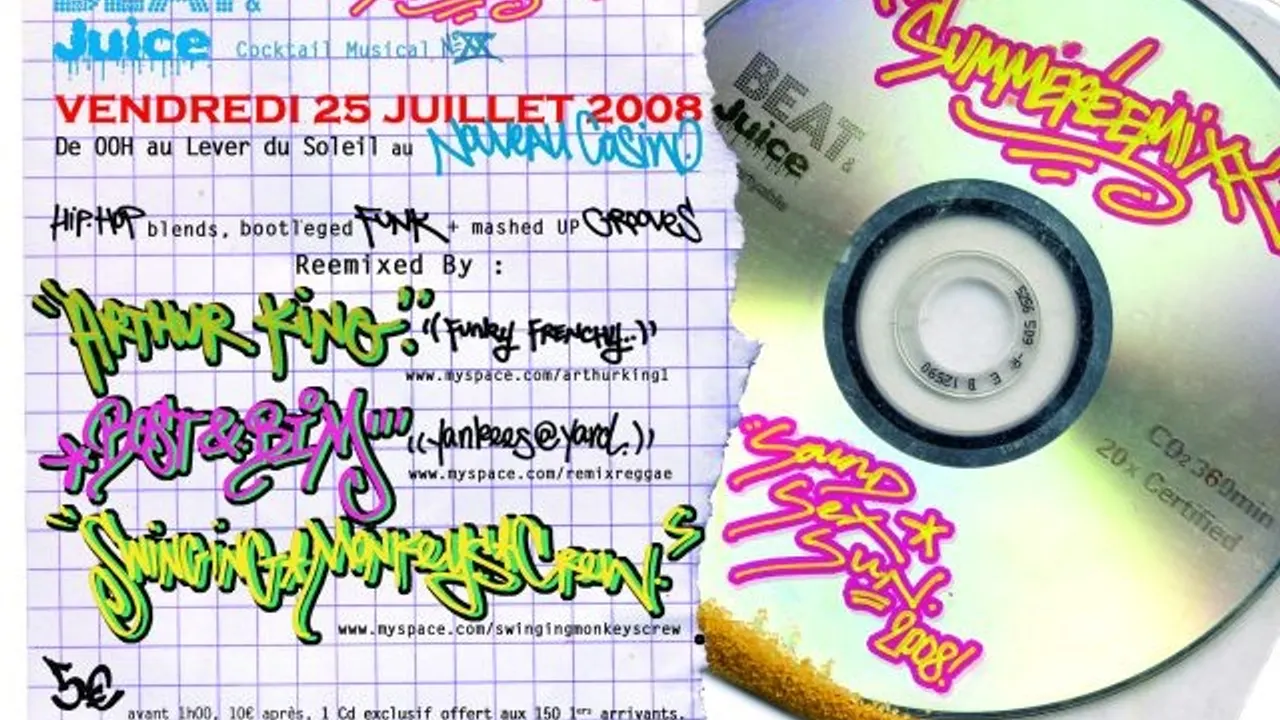 BEAT &
Juice Cocktail Musical N°XX
VENDREDI 25 JUILLET 2008
De 00H au Lever du Soleil au Nouveau Casino
HIP-HOP blends, bootleged FUNK + mashed UP GROOVES
Reemixed By :
"ARTHUR KING." ((FUNKY FRENCHY..))
www.myspace.com/arthurking1
*BOST & BIM''' ((yankees@yard.))
www.myspace.com/remixreggae
"SWINGING*MONKEYS*CREW."
www.myspace.com/swingingmonkeyscrew
5€
avant 1h00, 10€ après, 1 Cd exclusif offert aux 150 1ers arrivants.
SUMMERÉEMIXX
BEAT &
Juice
CO2 360min
20x Certified
Sound
Sex *
Sun.
2008!